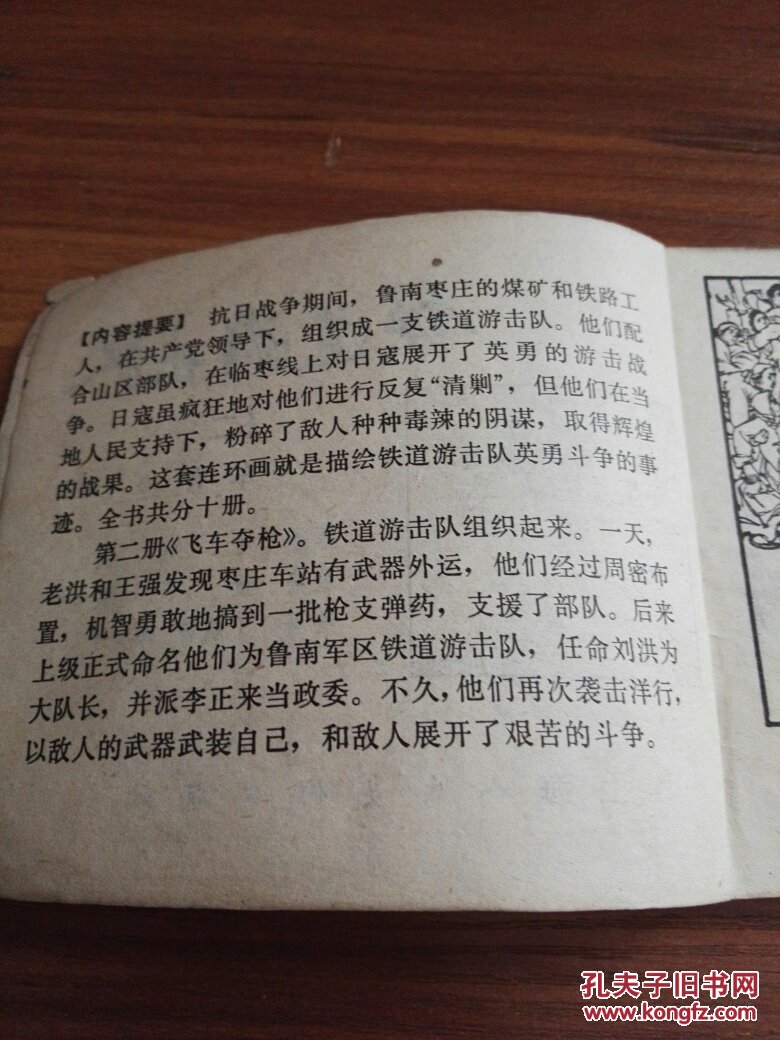 【内容提要】 抗日战争期间，鲁南枣庄的煤矿和铁路工
人，在共产党领导下，组织成一支铁道游击队。他们配
合山区部队，在临枣线上对日寇展开了英勇的游击战
争。日寇虽疯狂地对他们进行反复“清剿”，但他们在当
地人民支持下，粉碎了敌人种种毒辣的阴谋，取得辉煌
的战果。这套连环画就是描绘铁道游击队英勇斗争的事
迹。全书共分十册。
第二册《飞车夺枪》。铁道游击队组织起来。一天，
老洪和王强发现枣庄车站有武器外运，他们经过周密布
置，机智勇敢地搞到一批枪支弹药，支援了部队。后来
上级正式命名他们为鲁南军区铁道游击队，任命刘洪为
大队长，并派李正来当政委。不久，他们再次袭击洋行，
以敌人的武器武装自己，和敌人展开了艰苦的斗争。
孔夫子旧书网
www.kongfz.com